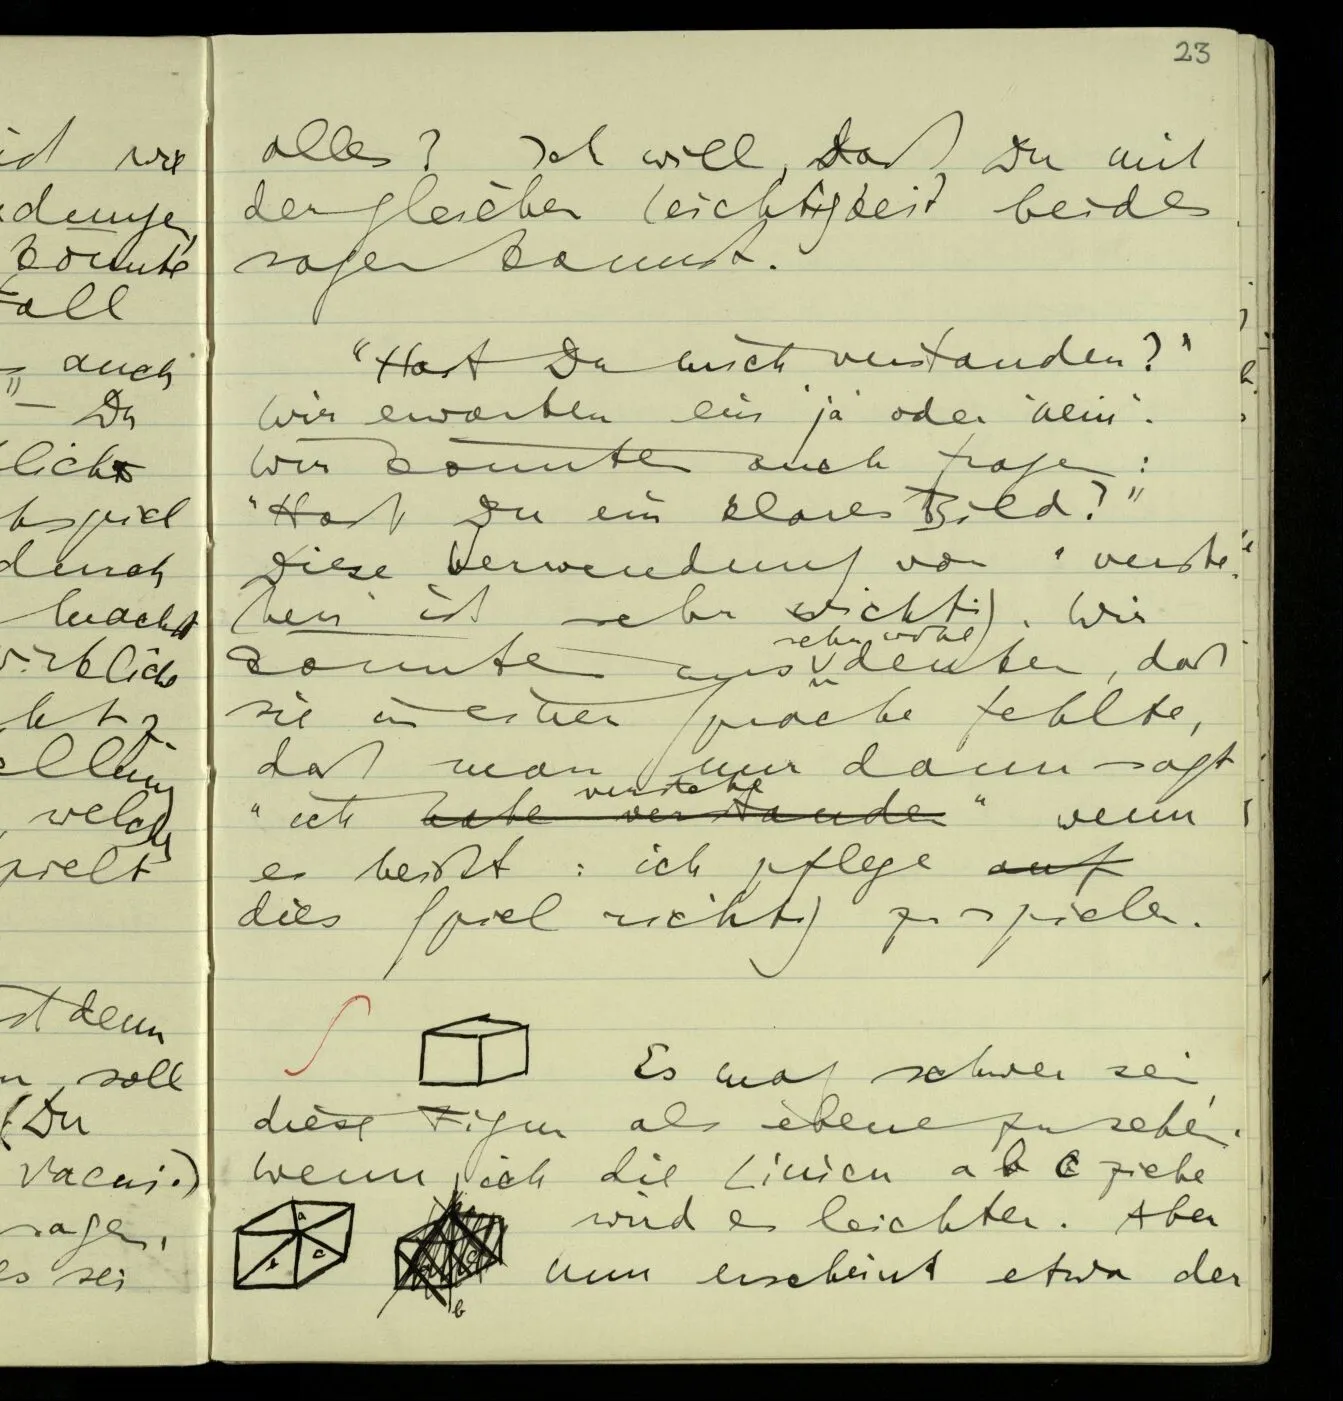 23
id wie
könnte
Fall
auch
" — Du
lichs
durch
macht
wirklich
welch
spielt
ist denn
soll
(Du
Vacui.)
sagen,
es sei
alles? Ich will, daß Du mit
der gleichen Leichtigkeit beides
sagen kannst.
"Hast Du mich verstanden?"
Wir erwarten ein 'ja' oder 'nein'.
Wir könnten auch fragen:
"Hast Du ein klares Bild?"
Diese Verwendung von 'verste-
hen' ist sehr wichtig. Wir
sehr wohl
könnten uns denken, daß
sie in einer Sprache fehlte,
daß man nur dann sagt
verstehe
"ich habe verstanden" wenn
es heißt: ich pflege auf
dies Spiel richtig zu spielen.
∫ Es mag schwer sein
diese Figur als ebene zu sehen.
Wenn ich die Linien a b c ziehe
a
wird es leichter. Aber
b c
nun erscheint etwa der
b